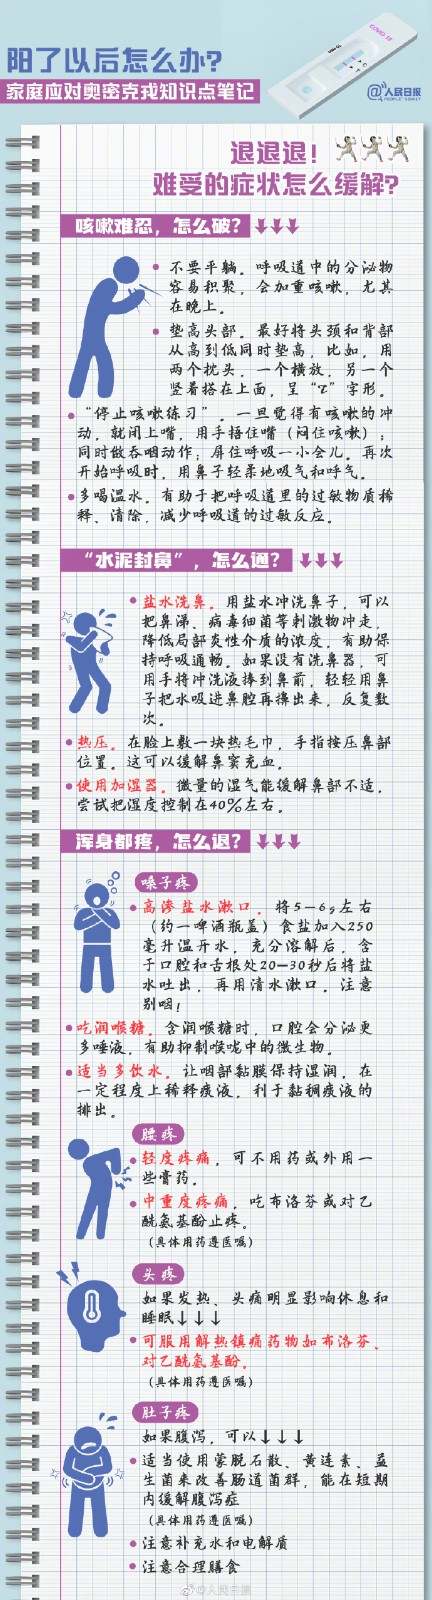 阳了以后怎么办?
家庭应对奥密克戎知识点笔记
COVID 19
@人民日报
PEOPLE'S DAILY
退退退!
难受的症状怎么缓解?
咳嗽难忍,怎么破?
不要平躺。呼吸道中的分泌物
容易积聚,会加重咳嗽,尤其
在晚上。
垫高头部。最好将头颈和背部
从高到低同时垫高,比如,用
两个枕头,一个横放,另一个
竖着搭在上面,呈“Z”字形。
“停止咳嗽练习”。一旦觉得有咳嗽的冲
动,就闭上嘴,用手捂住嘴(闷住咳嗽);
同时做吞咽动作;屏住呼吸一小会儿。再次
开始呼吸时,用鼻子轻柔地吸气和呼气。
多喝温水。有助于把呼吸道里的过敏物质稀
释、清除,减少呼吸道的过敏反应。
“水泥封鼻”,怎么通?
盐水洗鼻。用盐水冲洗鼻子,可以
把鼻涕、病毒细菌等刺激物冲走,
降低局部炎性介质的浓度,有助保
持呼吸通畅。如果没有洗鼻器,可
用手将冲洗液捧到鼻前,轻轻用鼻
子把水吸进鼻腔再擤出来,反复数
次。
热压。在脸上敷一块热毛巾,手指按压鼻部
位置。这可以缓解鼻窦充血。
使用加湿器。微量的湿气能缓解鼻部不适,
尝试把湿度控制在40%左右。
浑身都疼,怎么退?
嗓子疼
高渗盐水漱口。将5-6g左右
(约一啤酒瓶盖)食盐加入250
毫升温开水,充分溶解后,含
于口腔和舌根处20-30秒后将盐
水吐出,再用清水漱口。注意
别咽!
吃润喉糖。含润喉糖时,口腔会分泌更
多唾液,有助抑制喉咙中的微生物。
适当多饮水。让咽部黏膜保持湿润,在
一定程度上稀释痰液,利于黏稠痰液的
排出。
腰疼
轻度疼痛,可不用药或外用一
些膏药。
中重度疼痛,吃布洛芬或对乙
酰氨基酚止疼。
(具体用药遵医嘱)
头疼
如果发热、头痛明显影响休息和
睡眠↓↓↓
可服用解热镇痛药物如布洛芬、
对乙酰氨基酚。
(具体用药遵医嘱)
肚子疼
如果腹泻,可以↓↓↓
适当使用蒙脱石散、黄连素、益
生菌来改善肠道菌群,能在短期
内缓解腹泻症
(具体用药遵医嘱)
注意补充水和电解质
注意合理膳食
@人民日报